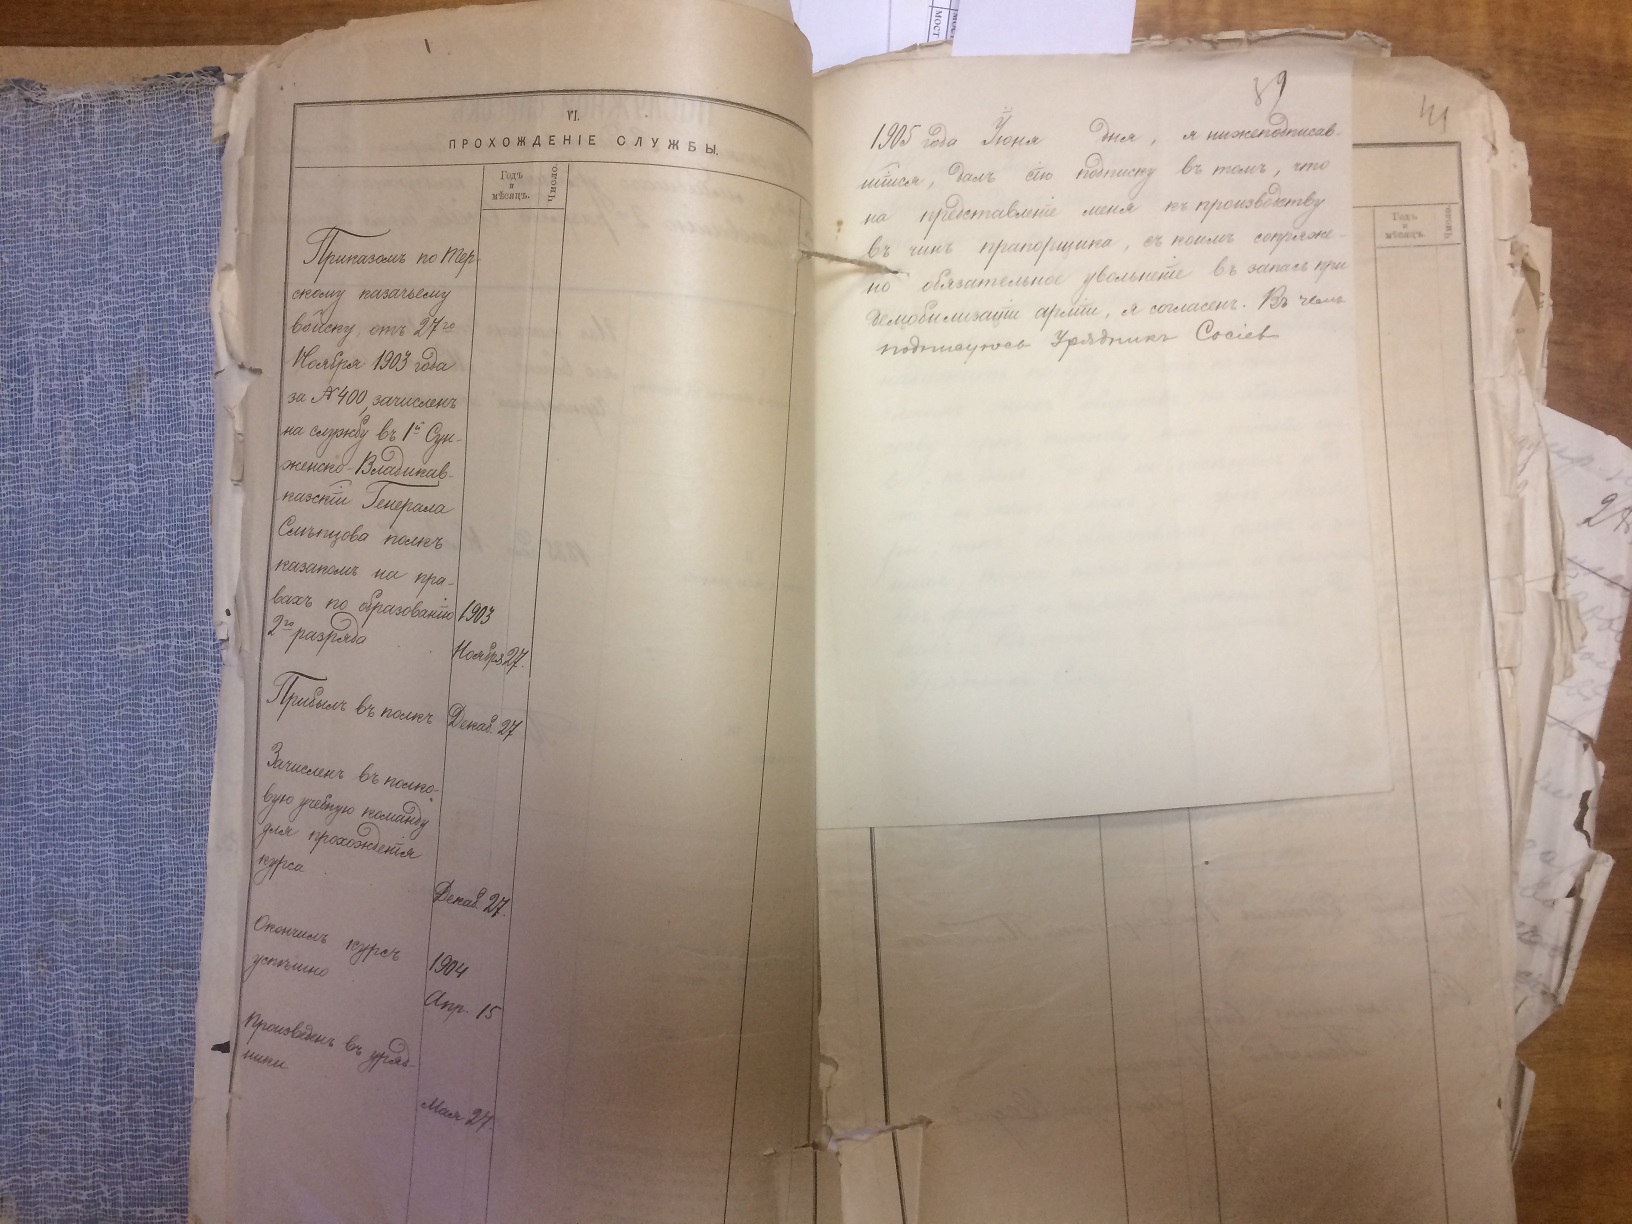 VI.
ПРОХОЖДЕНІЕ СЛУЖБЫ.
Годъ
и
мѣсяцъ.
Число.
Приказомъ по Тер-
скому казачьему
войску, отъ 27го
Ноября 1903 года
за №400, зачисленъ
на службу въ 1й Сун-
женско-Владикав-
казскій Генерала
Слѣпцова полкъ
казакомъ на пра-
вахъ по образованію 1903
2го разряда
Ноября 27.
Прибылъ въ полкъ Декаб. 27
Зачисленъ въ полко-
вую учебную команду
для прохожденія
курса
Декаб. 27.
Окончилъ курсъ
успѣшно 1904
Апр. 15
Произведенъ въ уряд-
ники
Мая 27
МОСТ
89
41
1905 года Іюня дня, я нижеподписав-
шійся, далъ сію подписку въ томъ, что
на представленіе меня къ производству
въ чинъ прапорщика, съ коимъ сопряже-
но обязательное увольненіе въ запасъ при
демобилизаціи арміи, я согласенъ. Въ чемъ
подписуюсь Урядникъ Сосіев
Годъ
и
мѣсяцъ.